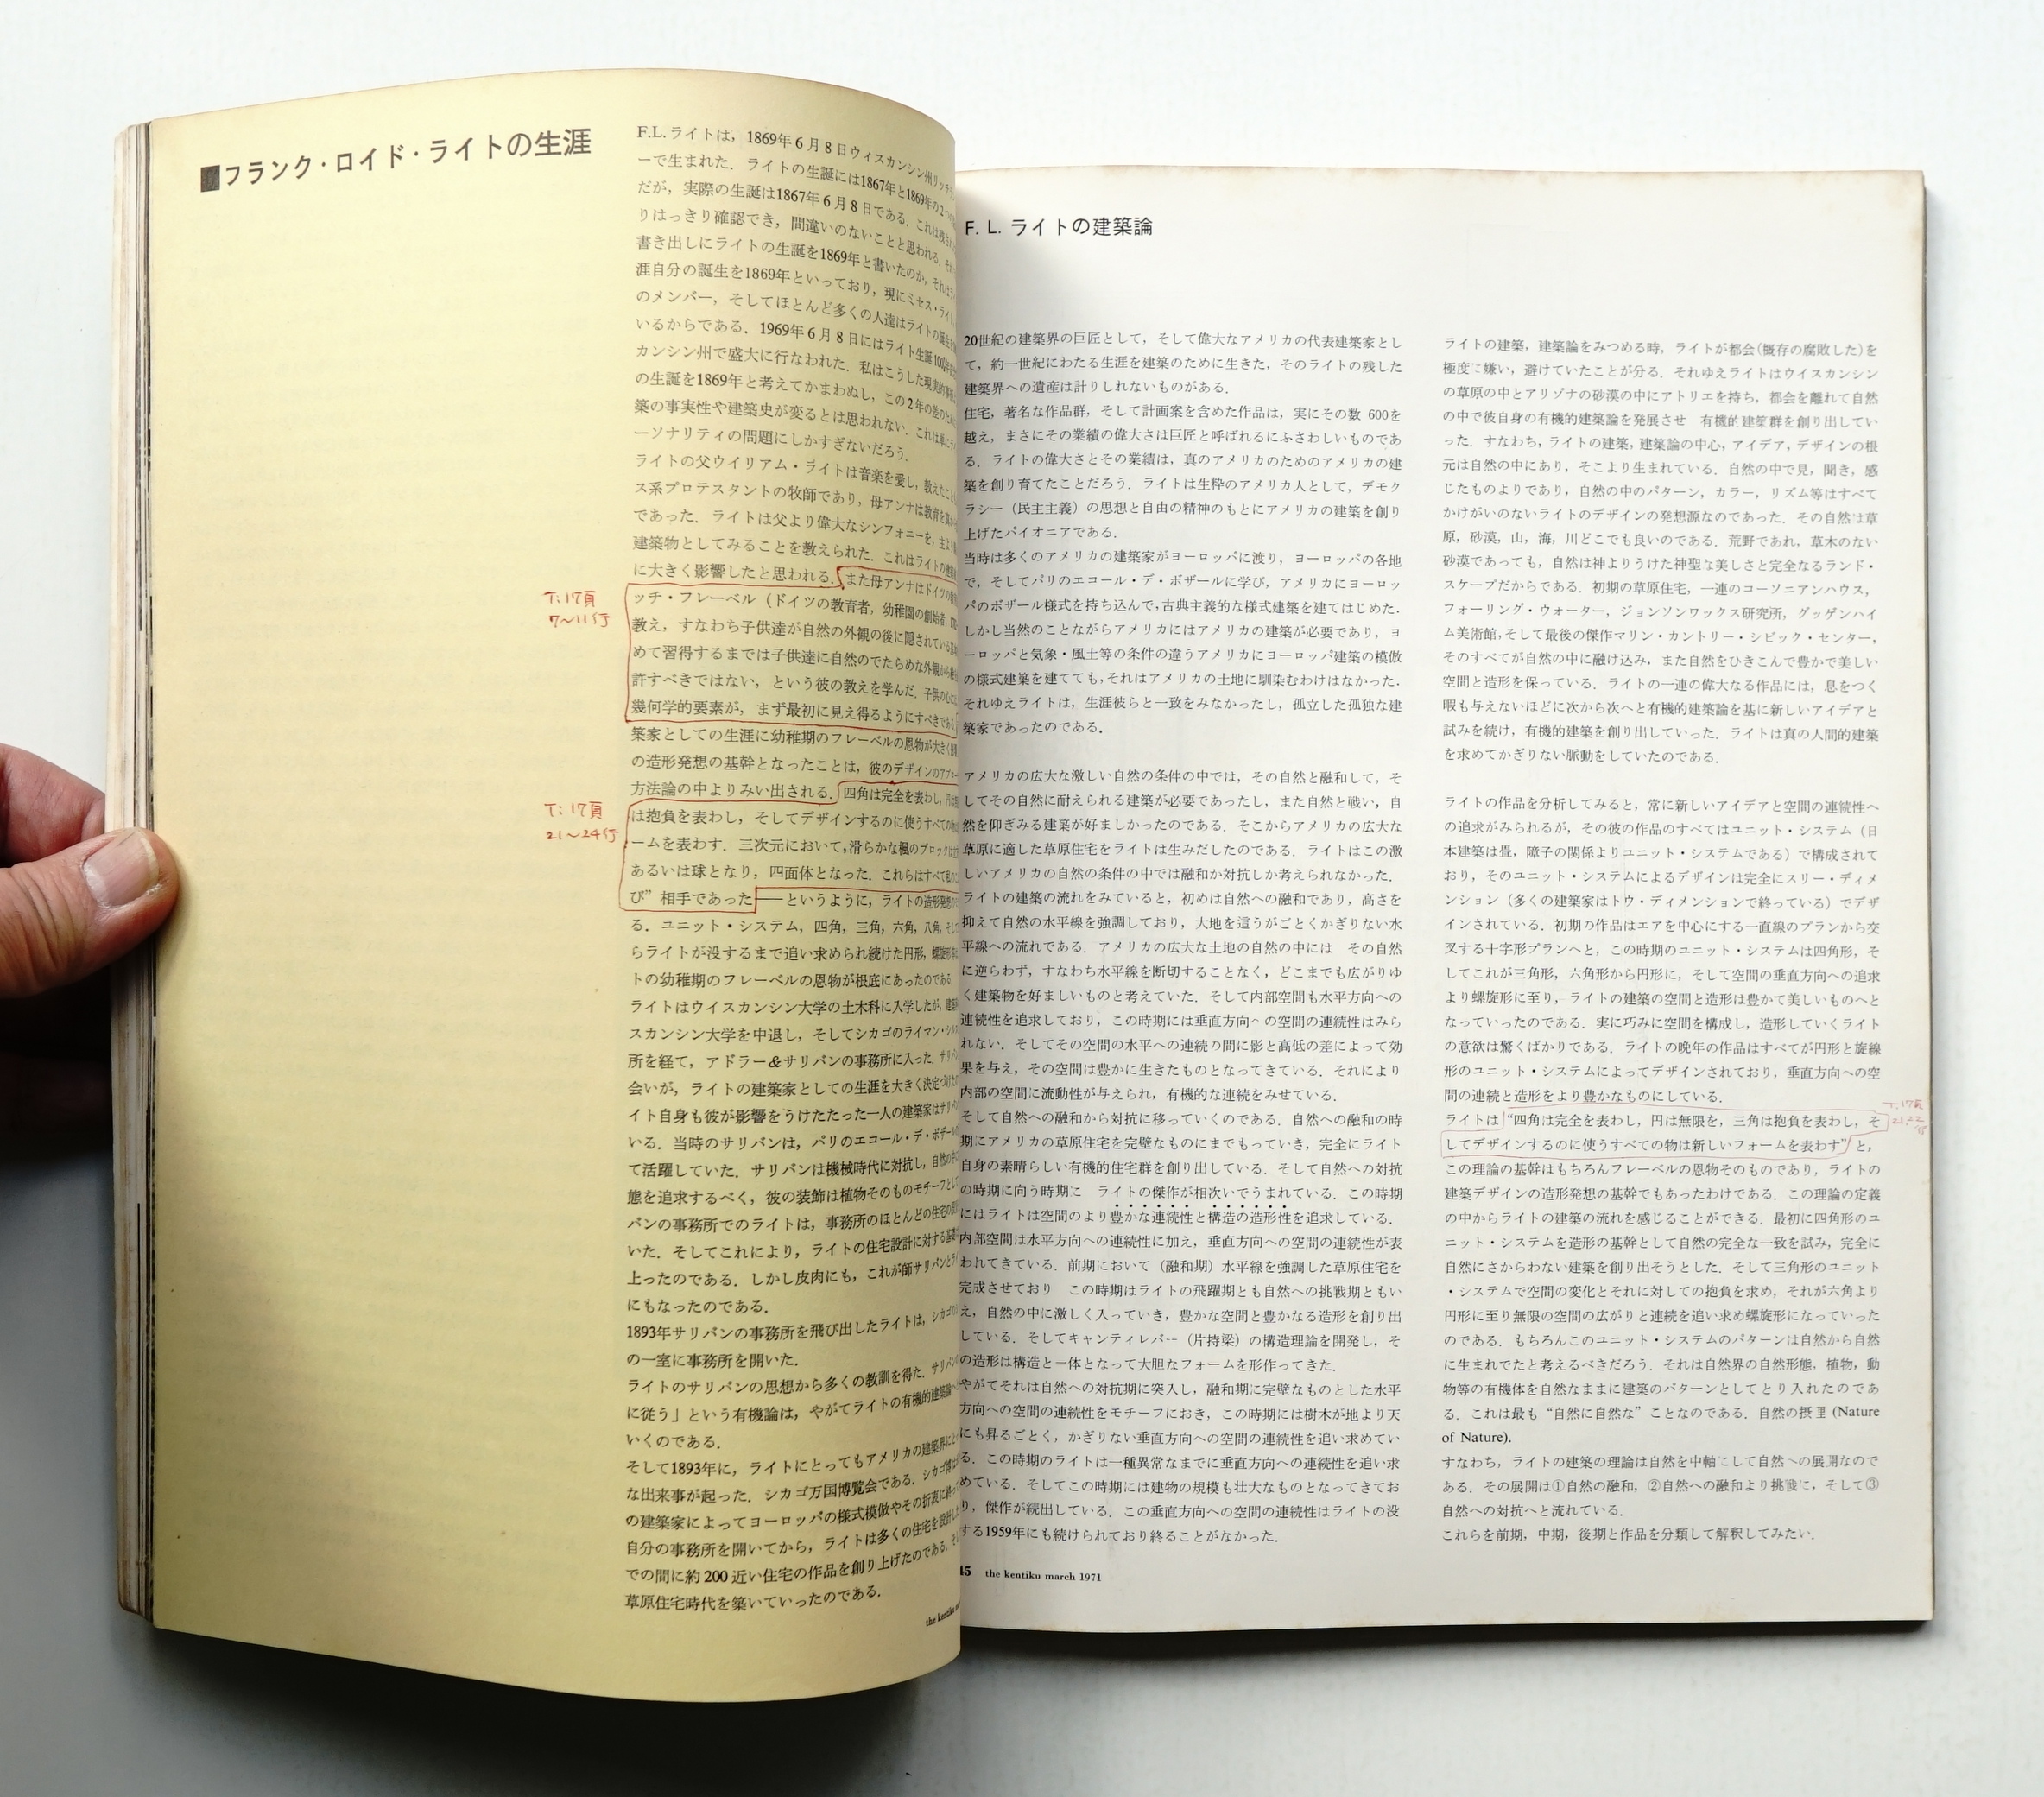 ■フランク・ロイド・ライトの生涯
F.L.ライトは，1869年6月8日ウイスカンシン州リッチ
ーで生まれた．ライトの生誕には1867年と1869年の2つ
だが，実際の生誕は1867年6月8日である．これは残さ
りはっきり確認でき，間違いのないことと思われる．
書き出しにライトの生誕を1869年と書いたのか，それは
涯自分の誕生を1869年といっており，現にミセス・ライト
のメンバー，そしてほとんど多くの人達はライトの誕生
いるからである．1969年6月8日にはライト生誕100
カンシン州で盛大に行なわれた．私はこうした現実的
の生誕を1869年と考えてかまわぬし，この2年の差のため
築の事実性や建築史が変るとは思われない．これは単に
ーソナリティの問題にしかすぎないだろう．
ライトの父ウイリアム・ライトは音楽を愛し，教えたこと
ス系プロテスタントの牧師であり，母アンナは教育を
であった．ライトは父より偉大なシンフォニーを，主より
建築物としてみることを教えられた．これはライトの建築
に大きく影響したと思われる．また母アンナはドイツの
T:17頁
7〜11行
ッチ・フレーベル（ドイツの教育者，幼稚園の創始者，
教え，すなわち子供達が自然の外観の後に隠されている
めて習得するまでは子供達に自然のでたらめな外観から
許すべきではない，という彼の教えを学んだ．子供の心に
幾何学的要素が，まず最初に見え得るようにすべきである
築家としての生涯に幼稚期のフレーベルの恩物が大きく
の造形発想の基幹となったことは，彼のデザインのアプロー
方法論の中よりみい出される．四角は完全を表わし，円は
T:17頁
21〜24行
は抱負を表わし，そしてデザインするのに使うすべての
ームを表わす．三次元において，滑らかな楓のブロックは
あるいは球となり，四面体となった．これらはすべて私の
び”相手であった——というように，ライトの造形発想の
る．ユニット・システム，四角，三角，六角，八角，そし
らライトが没するまで追い求められ続けた円形，螺旋形
トの幼稚期のフレーベルの恩物が根底にあったのである．
ライトはウイスカンシン大学の土木科に入学したが，
スカンシン大学を中退し，そしてシカゴのライマン・シル
所を経て，アドラー＆サリバンの事務所に入った．サリバ
会いが，ライトの建築家としての生涯を大きく決定づけた
イト自身も彼が影響をうけたたった一人の建築家はサリバ
いる．当時のサリバンは，パリのエコール・デ・ボザール
て活躍していた．サリバンは機械時代に対抗し，自然の中
態を追求するべく，彼の装飾は植物そのものモチーフとし
バンの事務所でのライトは，事務所のほとんどの住宅の
いた．そしてこれにより，ライトの住宅設計に対する基礎
上ったのである．しかし皮肉にも，これが師サリバンとラ
にもなったのである．
1893年サリバンの事務所を飛び出したライトは，シカゴの
の一室に事務所を開いた．
ライトのサリバンの思想から多くの教訓を得た．サリバンの
に従う」という有機論は，やがてライトの有機的建築論へ
いくのである．
そして1893年に，ライトにとってもアメリカの建築界にとっ
な出来事が起った．シカゴ万国博覧会である．シカゴ博は
の建築家によってヨーロッパの様式模倣やその折衷に終っ
自分の事務所を開いてから，ライトは多くの住宅を設計し
での間に約200近い住宅の作品を創り上げたのである．
草原住宅時代を築いていったのである．
the kentiku
F. L. ライトの建築論
20世紀の建築界の巨匠として，そして偉大なアメリカの代表建築家とし
て，約一世紀にわたる生涯を建築のために生きた，そのライトの残した
建築界への遺産は計りしれないものがある．
住宅，著名な作品群，そして計画案を含めた作品は，実にその数 600を
越え，まさにその業績の偉大さは巨匠と呼ばれるにふさわしいものであ
る．ライトの偉大さとその業績は，真のアメリカのためのアメリカの建
築を創り育てたことだろう．ライトは生粋のアメリカ人として，デモク
ラシー（民主主義）の思想と自由の精神のもとにアメリカの建築を創り
上げたパイオニアである．
当時は多くのアメリカの建築家がヨーロッパに渡り，ヨーロッパの各地
で，そしてパリのエコール・デ・ボザールに学び，アメリカにヨーロッ
パのボザール様式を持ち込んで，古典主義的な様式建築を建てはじめた．
しかし当然のことながらアメリカにはアメリカの建築が必要であり，ヨ
ーロッパと気象・風土等の条件の違うアメリカにヨーロッパ建築の模倣
の様式建築を建てても，それはアメリカの土地に馴染むわけはなかった．
それゆえライトは，生涯彼らと一致をみなかったし，孤立した孤独な建
築家であったのである．
アメリカの広大な激しい自然の条件の中では，その自然と融和して，そ
してその自然に耐えられる建築が必要であったし，また自然と戦い，自
然を仰ぎみる建築が好ましかったのである．そこからアメリカの広大な
草原に適した草原住宅をライトは生みだしたのである．ライトはこの激
しいアメリカの自然の条件の中では融和か対抗しか考えられなかった．
ライトの建築の流れをみていると，初めは自然への融和であり，高さを
抑えて自然の水平線を強調しており，大地を這うがごとくかぎりない水
平線への流れである．アメリカの広大な土地の自然の中には　その自然
に逆らわず，すなわち水平線を断切することなく，どこまでも広がりゆ
く建築物を好ましいものと考えていた．そして内部空間も水平方向への
連続性を追求しており，この時期には垂直方向への空間の連続性はみら
れない．そしてその空間の水平への連続の間に影と高低の差によって効
果を与え，その空間は豊かに生きたものとなってきている．それにより
内部の空間に流動性が与えられ，有機的な連続をみせている．
そして自然への融和から対抗に移っていくのである．自然への融和の時
期にアメリカの草原住宅を完璧なものにまでもっていき，完全にライト
自身の素晴らしい有機的住宅群を創り出している．そして自然への対抗
の時期に向う時期に　ライトの傑作が相次いでうまれている．この時期
にはライトは空間のより豊かな連続性と構造の造形性を追求している．
内部空間は水平方向への連続性に加え，垂直方向への空間の連続性が表
われてきている．前期において（融和期）水平線を強調した草原住宅を
完成させており　この時期はライトの飛躍期とも自然への挑戦期ともい
え，自然の中に激しく入っていき，豊かな空間と豊かなる造形を創り出
している．そしてキャンティレバー（片持梁）の構造理論を開発し，そ
の造形は構造と一体となって大胆なフォームを形作ってきた．
やがてそれは自然への対抗期に突入し，融和期に完璧なものとした水平
方向への空間の連続性をモチーフにおき，この時期には樹木が地より天
にも昇るごとく，かぎりない垂直方向への空間の連続性を追い求めてい
る．この時期のライトは一種異常なまでに垂直方向への連続性を追い求
めている．そしてこの時期には建物の規模も壮大なものとなってきてお
り，傑作が続出している．この垂直方向への空間の連続性はライトの没
する1959年にも続けられており終ることがなかった．
45 the kentiku march 1971
ライトの建築，建築論をみつめる時，ライトが都会（既存の腐敗した）を
極度に嫌い，避けていたことが分る．それゆえライトはウイスカンシン
の草原の中とアリゾナの砂漠の中にアトリエを持ち，都会を離れて自然
の中で彼自身の有機的建築論を発展させ　有機的建築群を創り出してい
った．すなわち，ライトの建築，建築論の中心，アイデア，デザインの根
元は自然の中にあり，そこより生まれている．自然の中で見，聞き，感
じたものよりであり，自然の中のパターン，カラー，リズム等はすべて
かけがいのないライトのデザインの発想源なのであった．その自然は草
原，砂漠，山，海，川どこでも良いのである．荒野であれ，草木のない
砂漠であっても，自然は神よりうけた神聖な美しさと完全なるランド・
スケープだからである．初期の草原住宅，一連のコーソニアンハウス，
フォーリング・ウォーター，ジョンソンワックス研究所，グッゲンハイ
ム美術館，そして最後の傑作マリン・カントリー・シビック・センター，
そのすべてが自然の中に融け込み，また自然をひきこんで豊かで美しい
空間と造形を保っている．ライトの一連の偉大なる作品には，息をつく
暇も与えないほどに次から次へと有機的建築論を基に新しいアイデアと
試みを続け，有機的建築を創り出していった．ライトは真の人間的建築
を求めてかぎりない脈動をしていたのである．
ライトの作品を分析してみると，常に新しいアイデアと空間の連続性へ
の追求がみられるが，その彼の作品のすべてはユニット・システム（日
本建築は畳，障子の関係よりユニット・システムである）で構成されて
おり，そのユニット・システムによるデザインは完全にスリー・ディメ
ンション（多くの建築家はトウ・ディメンションで終っている）でデザ
インされている．初期の作品はエアを中心にする一直線のプランから交
叉する十字形プランへと，この時期のユニット・システムは四角形，そ
してこれが三角形，六角形から円形に，そして空間の垂直方向への追求
より螺旋形に至り，ライトの建築の空間と造形は豊かで美しいものへと
なっていったのである．実に巧みに空間を構成し，造形していくライト
の意欲は驚くばかりである．ライトの晩年の作品はすべてが円形と旋線
形のユニット・システムによってデザインされており，垂直方向への空
間の連続と造形をより豊かなものにしている．
ライトは“四角は完全を表わし，円は無限を，三角は抱負を表わし，そ
してデザインするのに使うすべての物は新しいフォームを表わす”と，
T:17頁
21.22行
この理論の基幹はもちろんフレーベルの恩物そのものであり，ライトの
建築デザインの造形発想の基幹でもあったわけである．この理論の定義
の中からライトの建築の流れを感じることができる．最初に四角形のユ
ニット・システムを造形の基幹として自然の完全な一致を試み，完全に
自然にさからわない建築を創り出そうとした．そして三角形のユニット
・システムで空間の変化とそれに対しての抱負を求め，それが六角より
円形に至り無限の空間の広がりと連続を追い求め螺旋形になっていった
のである．もちろんこのユニット・システムのパターンは自然から自然
に生まれでたと考えるべきだろう．それは自然界の自然形態，植物，動
物等の有機体を自然なままに建築のパターンとしてとり入れたのであ
る．これは最も“自然に自然な”ことなのである．自然の摂理 (Nature
of Nature).
すなわち，ライトの建築の理論は自然を中軸にして自然への展開なので
ある．その展開は①自然の融和，②自然への融和より挑戦に，そして③
自然への対抗へと流れている．
これらを前期，中期，後期と作品を分類して解釈してみたい．